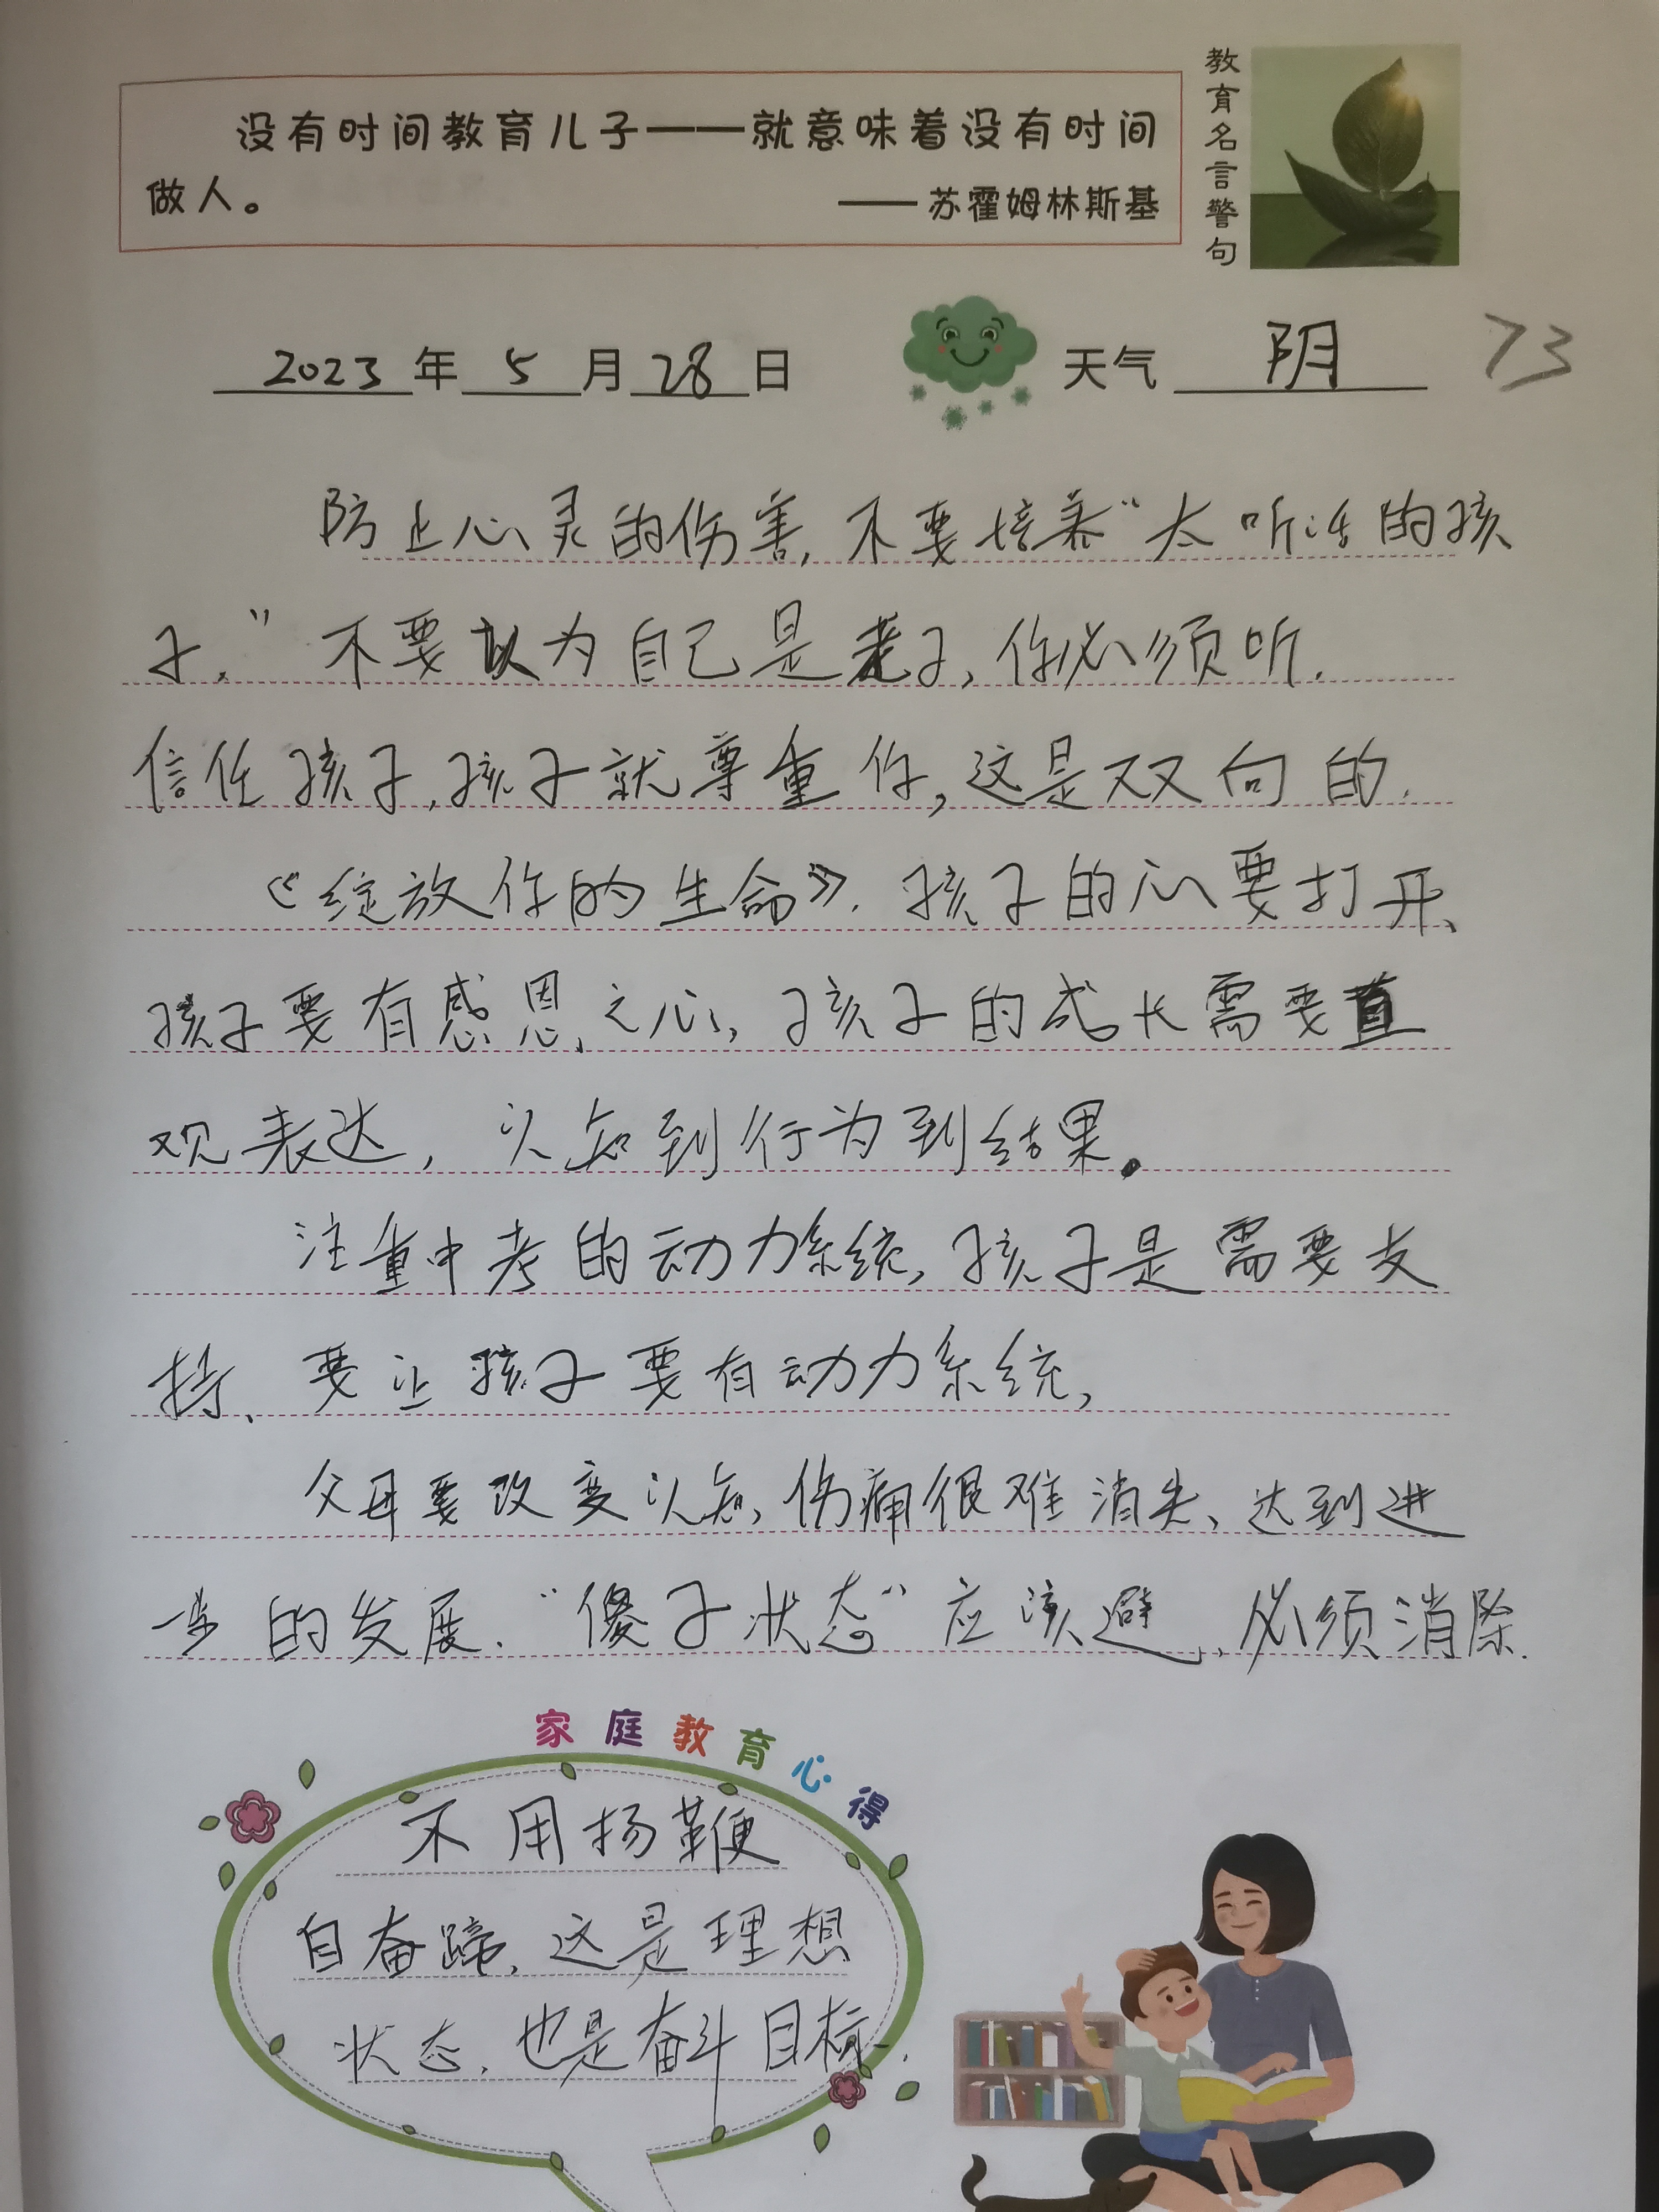 教育名言警句
没有时间教育儿子——就意味着没有时间
做人。 ——苏霍姆林斯基
2023年5月28日 天气 阴 73
防止心灵的伤害,不要培养“太听话的孩
子.”不要以为自己是老子,你必须听.
信任孩子,孩子就尊重你,这是双向的.
《绽放你的生命》.孩子的心要打开、
孩子要有感恩之心,孩子的成长需要直
观表达,认知到行为到结果。
注重中考的动力系统,孩子是需要支
持、要让孩子要有动力系统,
父母要改变认知,伤痛很难消失、达到进
步的发展.“傻子状态”应该避、必须消除.
家庭教育心得
不用扬鞭
自奋蹄,这是理想
状态,也是奋斗目标.